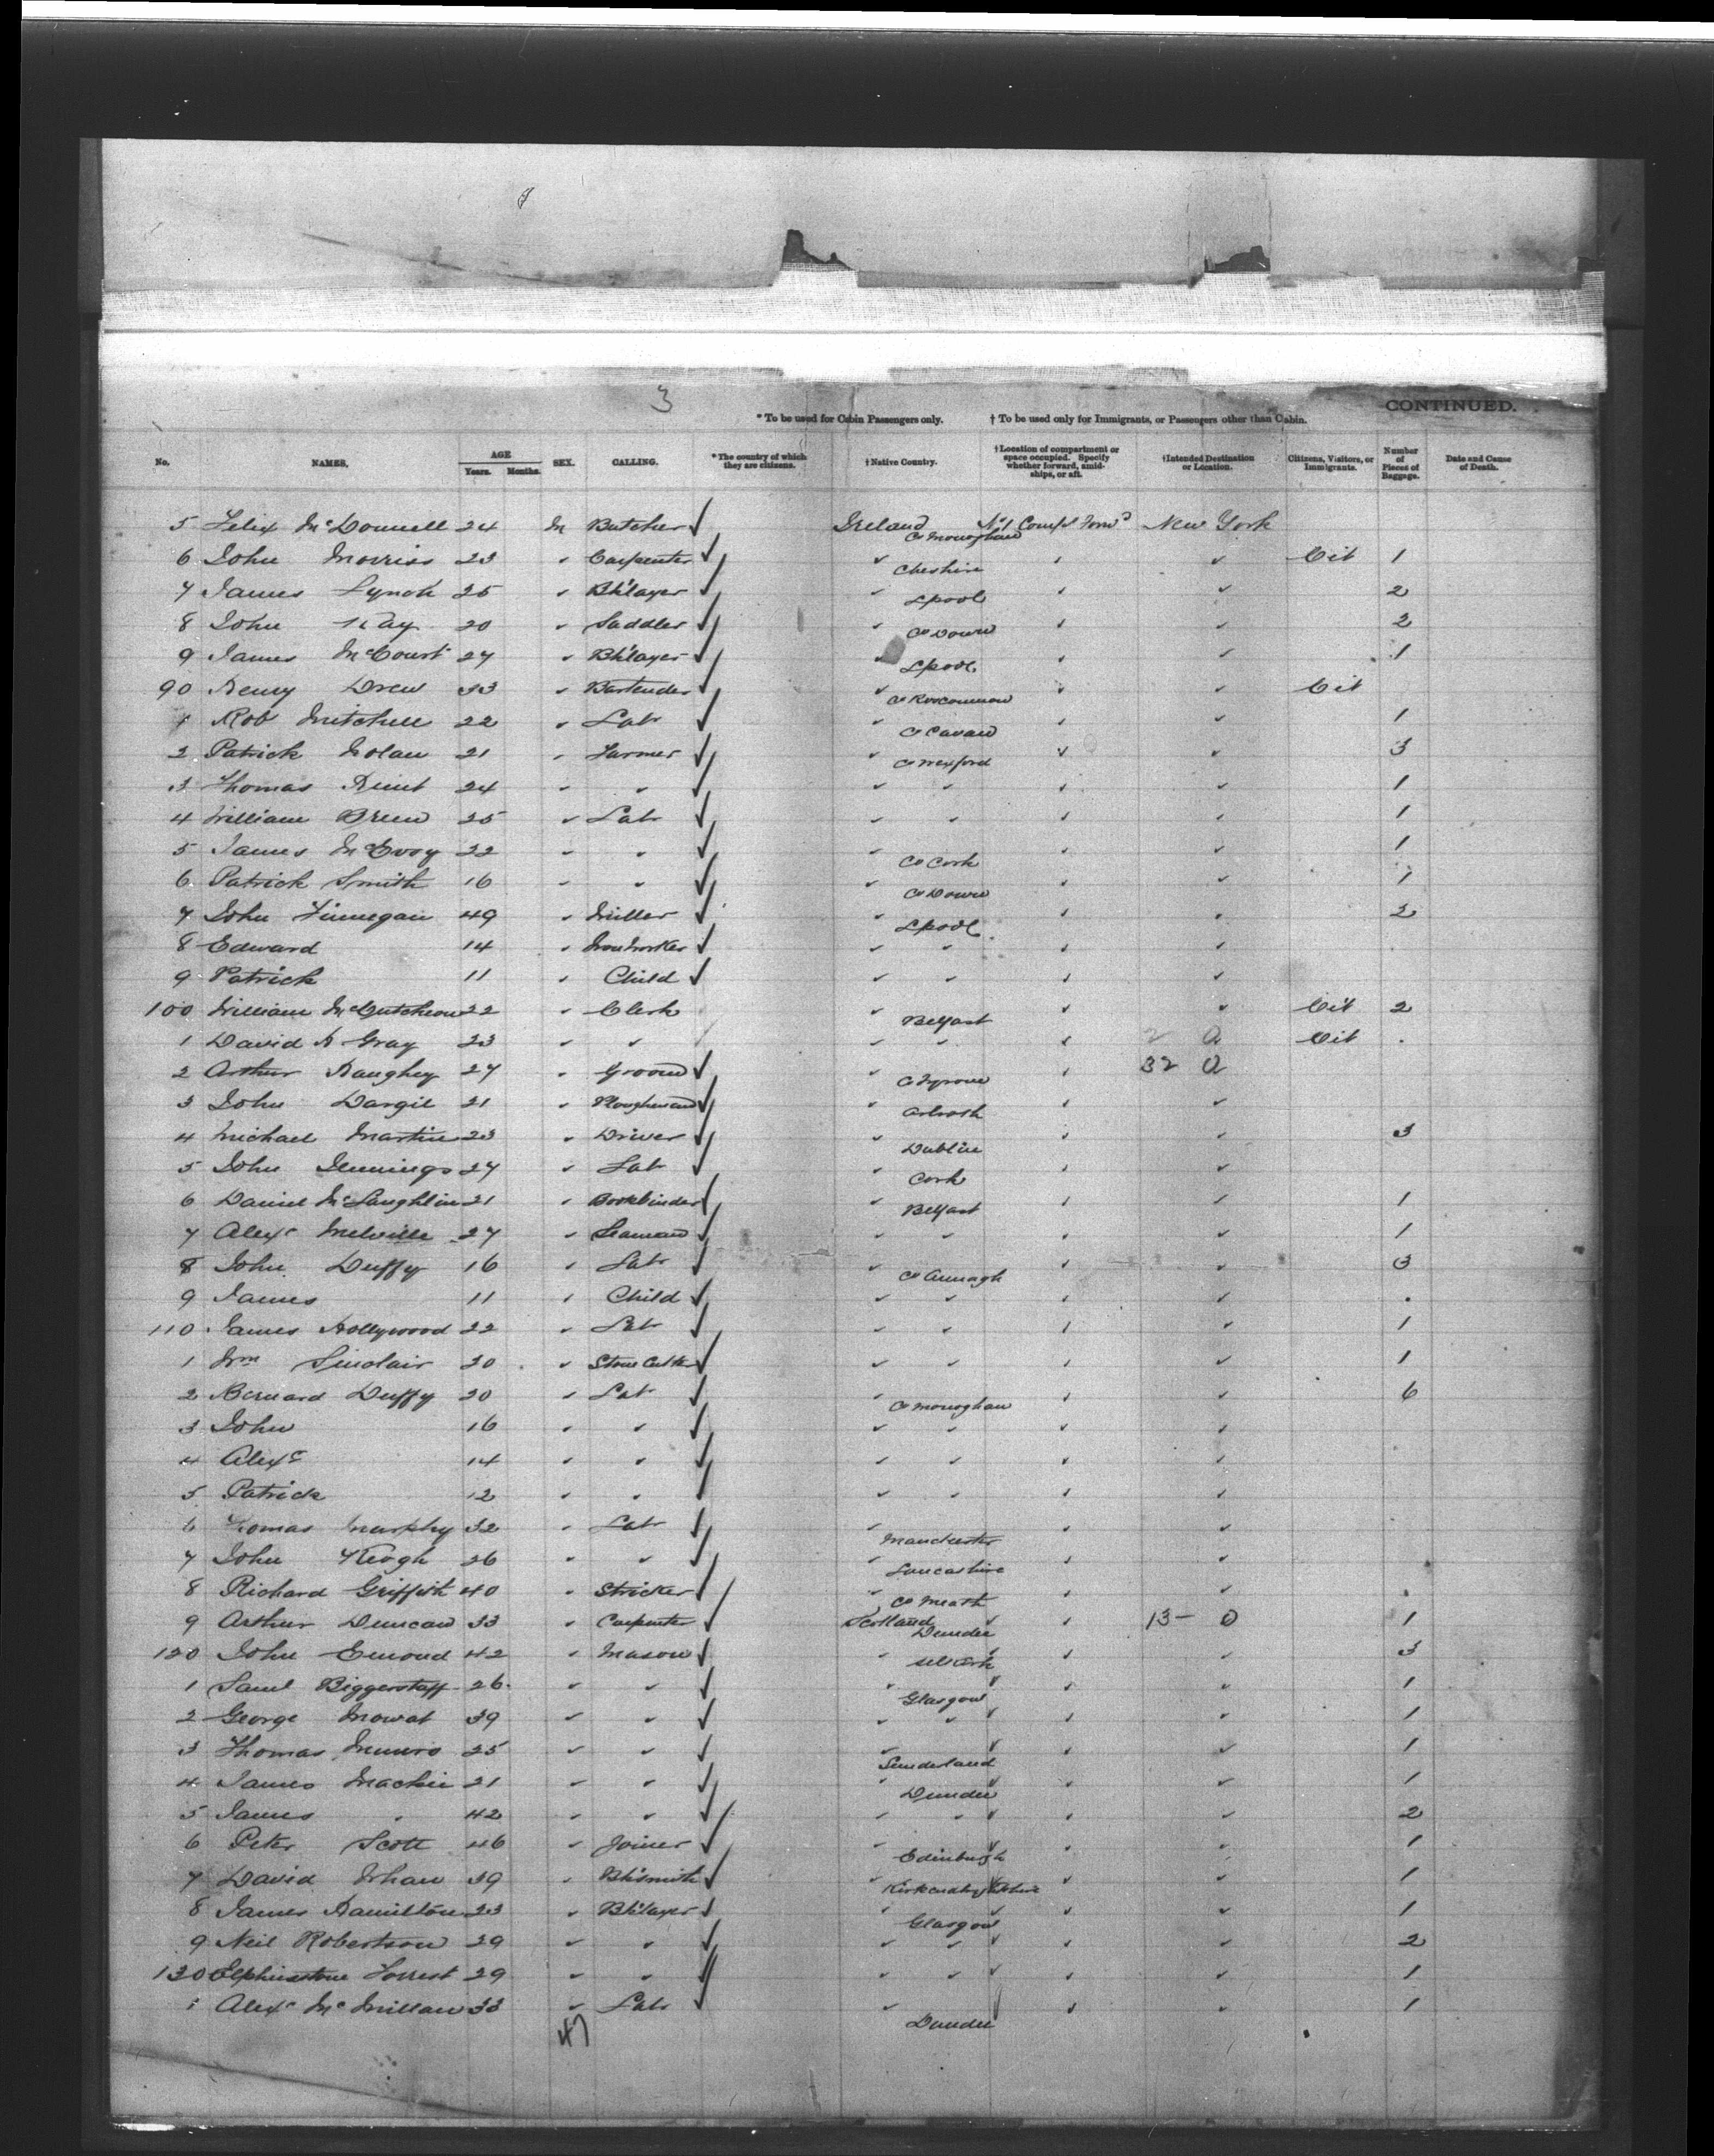 3
* To be used for Cabin Passengers only. † To be used only for Immigrants, or Passengers other than Cabin. CONTINUED.
No. NAMES. AGE Years. Months. SEX. CALLING. * The country of which they are citizens. † Native Country. † Location of compartment or space occupied. Specify whether forward, amidships, or aft. † Intended Destination or Location. Citizens, Visitors, or Immigrants. Number of Pieces of Baggage. Date and Cause of Death.
5 Felix McDonnell 24 M Butcher ✓ Ireland Co Monoghan No 1 Compt Forwd New York
6 John Morriss 23 " Carpenter ✓ " Cheshire " " Cit 1
7 James Lynch 25 " Bk'layer ✓ " Lpool " " 2
8 John Kay 20 " Saddler ✓ " Co Down " " 2
9 James McCourt 27 " Bk'layer ✓ " Lpool " " 1
90 Henry Drew 33 " Bartender ✓ " Co Roscommon " " Cit
1 Rob Mitchell 22 " Labr ✓ " Co Cavan " " 1
2 Patrick Nolan 21 " Farmer ✓ " Co Wexford " " 3
3 Thomas 24 " " ✓ " " " " 1
4 William 25 " Labr ✓ " " " " 1
5 James McEvoy 22 " " ✓ " Co Cork " " 1
6 Patrick Smith 16 " " ✓ " Co Down " " 1
7 John Finnegan 49 " Miller ✓ " Lpool " " 2
8 Edward 14 " Ironworker ✓ " " " "
9 Patrick 11 " Child ✓ " " " "
100 William McCutcheon 22 " Clerk " Belfast " " Cit 2
1 David H Gray 23 " " " " " 2 a Cit
2 Arthur Haughey 27 " Groom ✓ " Co Tyrone " 32 a
3 John Dargie 21 " Ploughman ✓ " Arbroath " "
4 Michael Martin 23 " Driver ✓ " Dublin " " 3
5 John Jennings 27 " Labr ✓ " Cork " "
6 Daniel McLaughlin 21 " Bookbinder ✓ " Belfast " " 1
7 Alexr Melville 27 " Seaman ✓ " " " " 1
8 John Duffy 16 " Labr ✓ " Co Armagh " " 3
9 James 11 " Child ✓ " " " "
110 James Hollywood 22 " Labr ✓ " " " " 1
1 Wm Sinclair 20 " Stone Cutter ✓ " " " " 1
2 Bernard Duffy 20 " Labr ✓ " Co Monoghan " " 6
3 John 16 " " ✓ " " " "
4 Alexr 14 " " ✓ " " " "
5 Patrick 12 " " ✓ " " " "
6 Thomas Murphy 32 " Labr ✓ " Manchester " "
7 John Keogh 26 " " ✓ " Lancashire " "
8 Richard Griffith 40 " Stricker ✓ " Co Meath " "
9 Arthur Duncan 33 " Carpenter ✓ Scotland Dundee " 13 - 0 1
120 John Emond 42 " Mason ✓ " Selkirk " " 3
1 Saml Biggerstaff 26 " " ✓ " Glasgow " " 1
2 George Mowat 39 " " ✓ " " " " 1
3 Thomas Munro 25 " " ✓ " Sunderland " " 1
4 James Mackie 21 " " ✓ " Dundee " " 1
5 James " 42 " " ✓ " " " " 2
6 Peter Scott 46 " Joiner ✓ " Edinburgh " " 1
7 David 39 " Bk'smith ✓ " Kirkcudbrightshire " " 1
8 James Hamilton 23 " Bk'layer ✓ " Glasgow " " 1
9 Neil Robertson 29 " " ✓ " " " " 2
130 Elphinstone Forrest 29 " " ✓ " " " " 1
1 Alexr McMillan 33 " Labr ✓ " Dundee " " 1
47